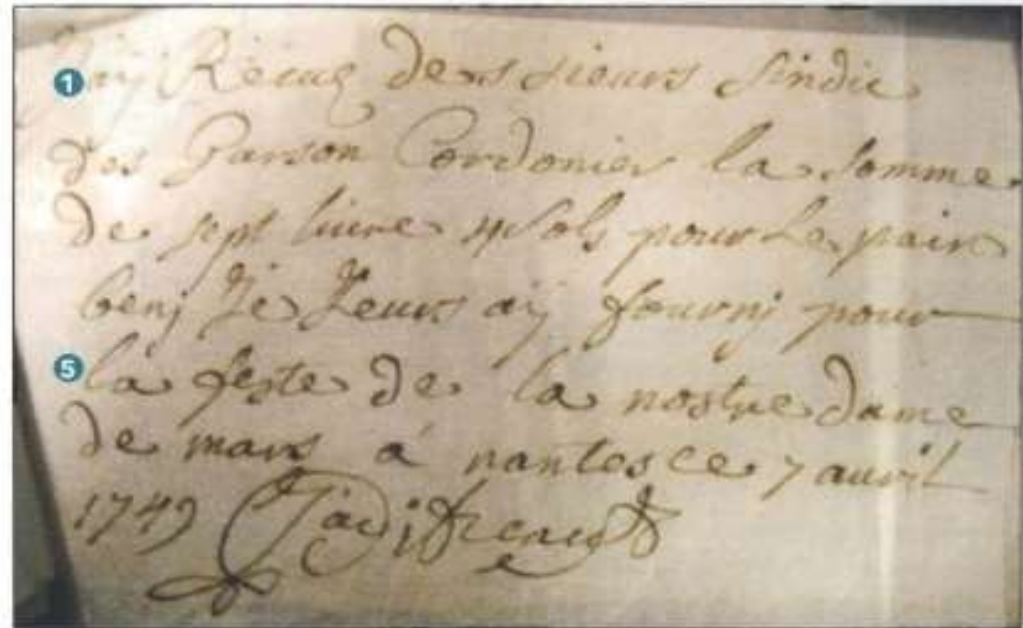 1 Recus des sieurs sindic
des Garson Cordonier la somme
de sept livre 4 sols pour Le pain
benj Je Leurs aÿ fournj pour
5 la feste de la nostre dame
de mars a nantes ce 7 avril
1749